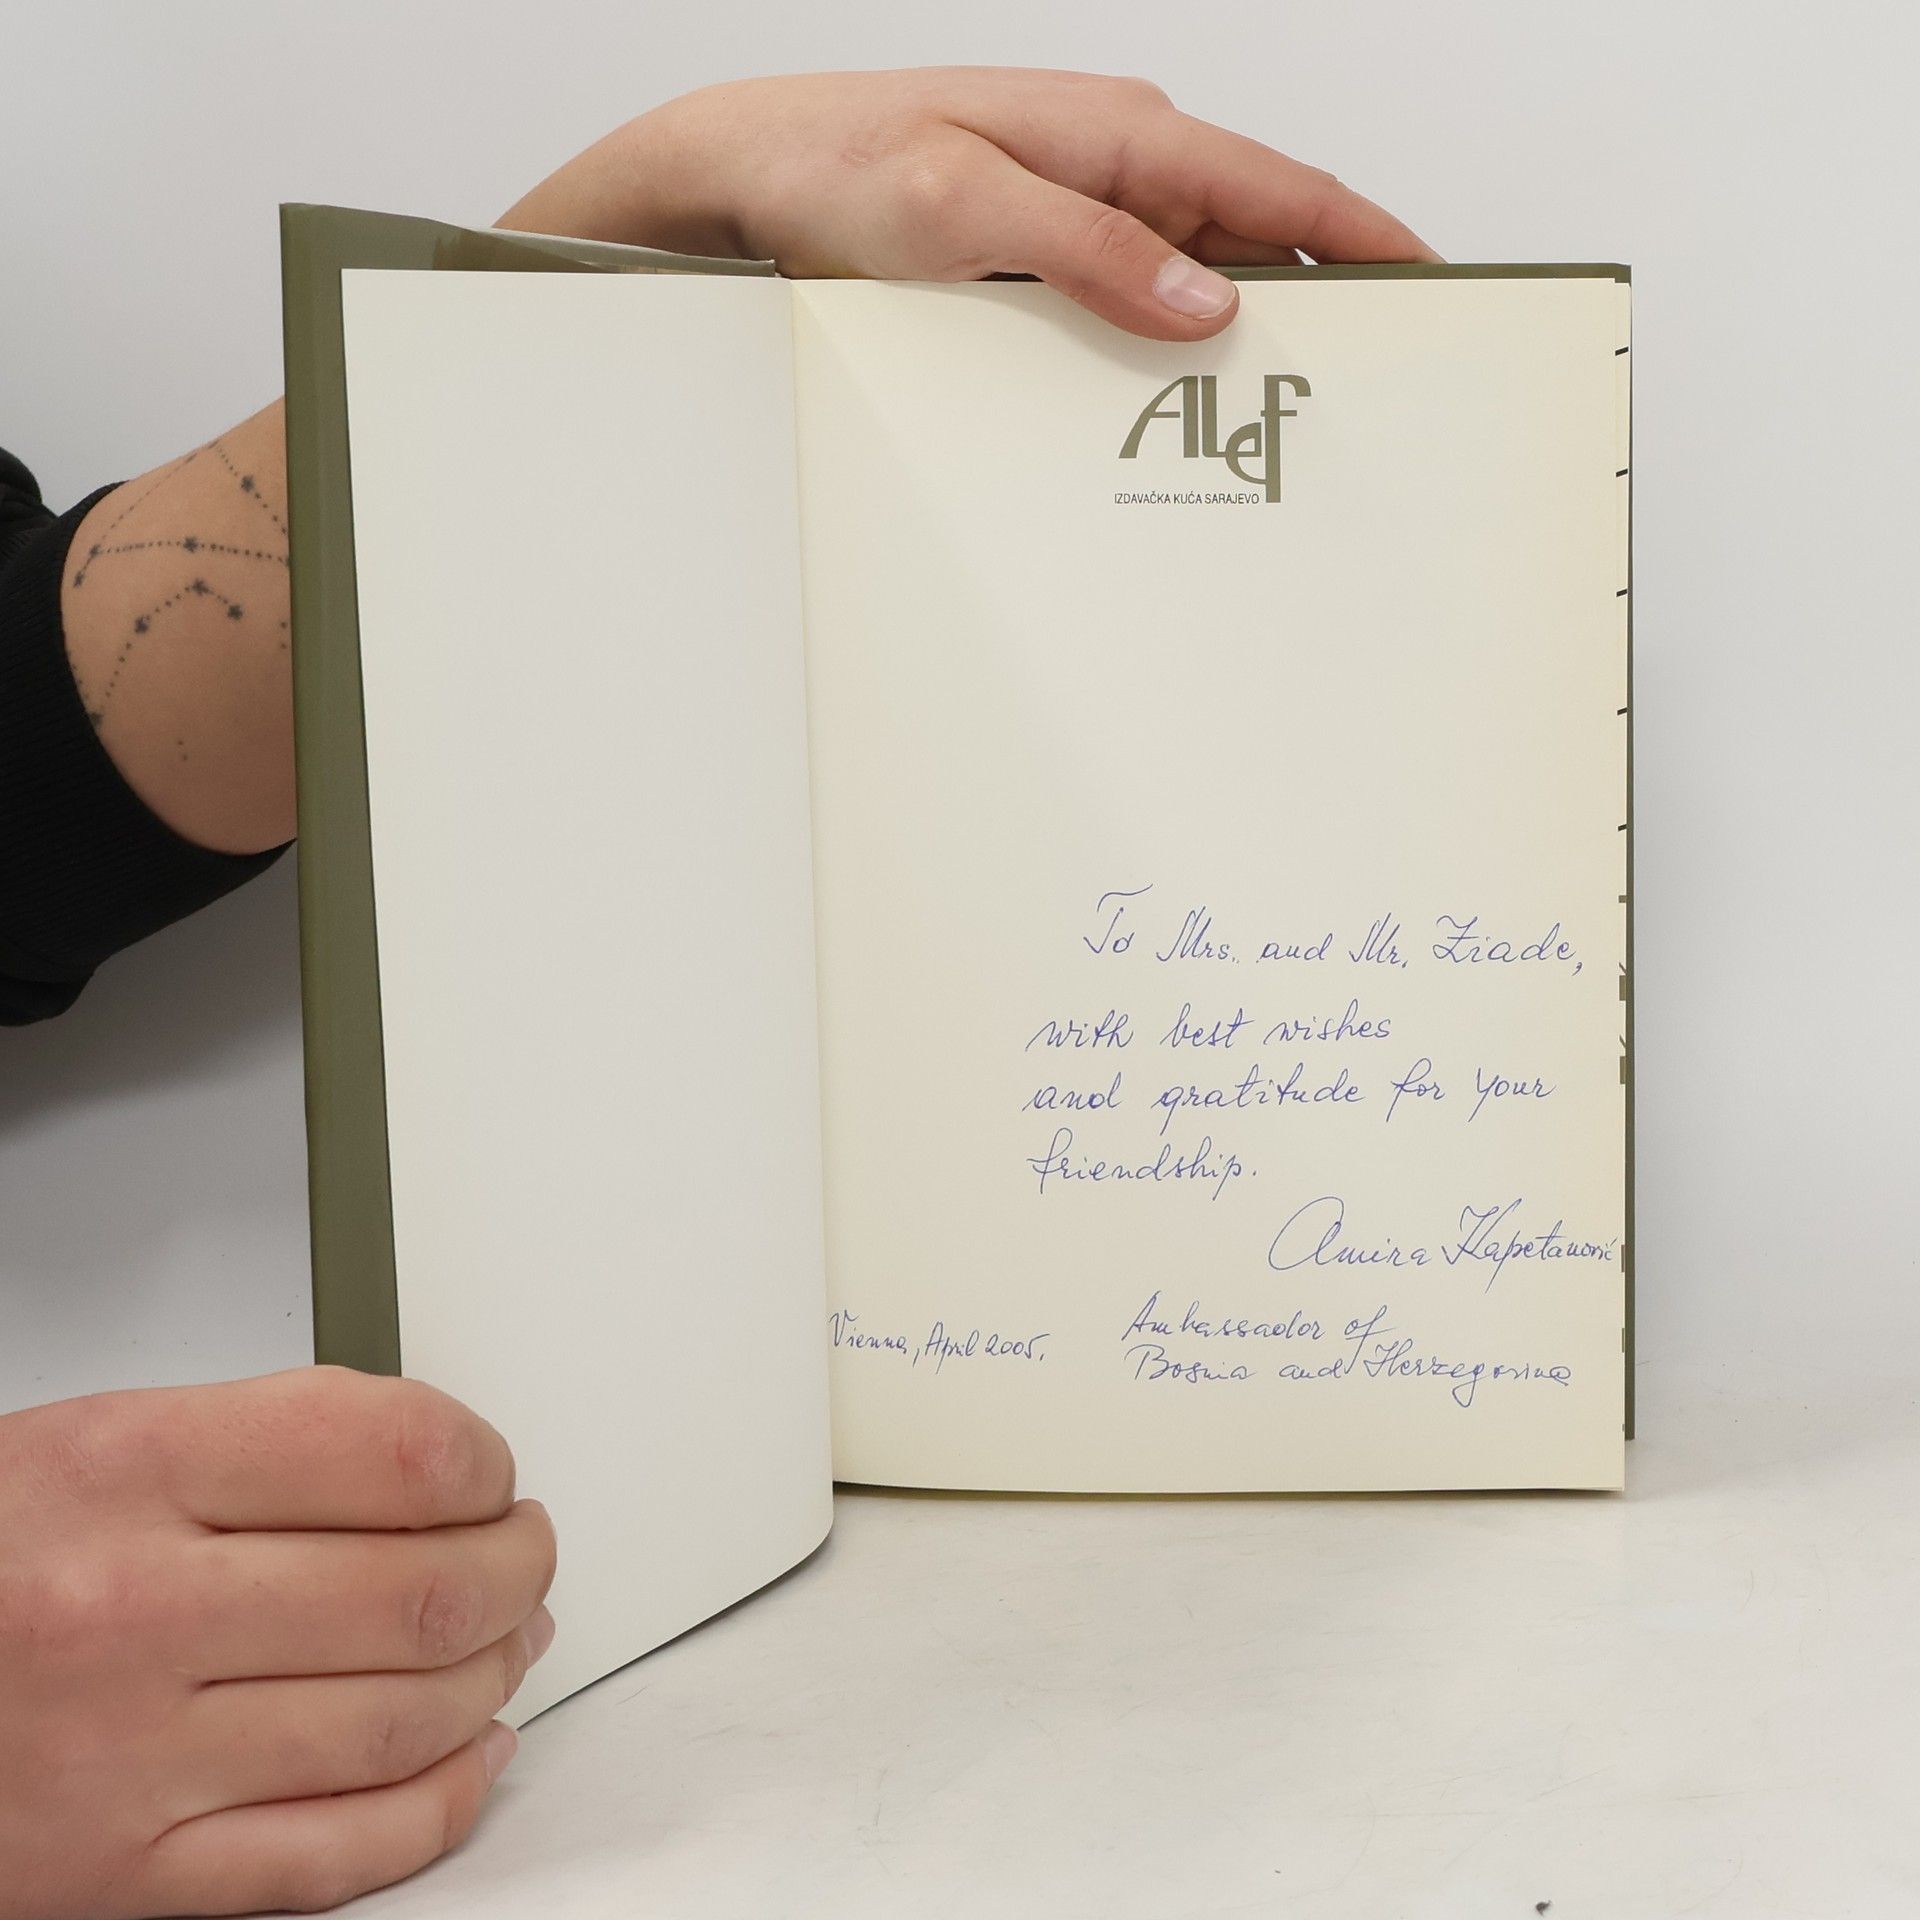 ALef
IZDAVAČKA KUĆA SARAJEVO
To Mrs. and Mr. Ziade,
with best wishes
and gratitude for your
friendship.
Amira Kapetanović
Vienna, April 2005.
Ambassador of
Bosnia and Herzegovina